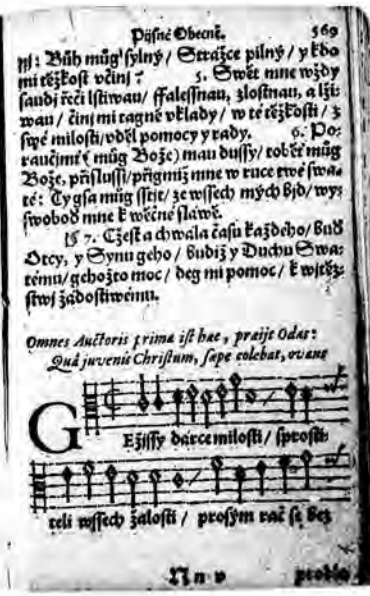 Pijsně Obecné. 569
Bůh můg sylný / Strážce pilný / y kdo
mi těžkost včinj? 5. Swět mne wždy
saudj řečj lstiwau / ffalessnau, zlostnau, a lži:
wau / činj mi tagné vklady / w té těžkosti / z
swé milosti / vděl pomocy y rady. 6. Po:
raučjmť (můg Bože) mau dussy / tobě můg
Bože, přislussj / přigmiž mne w ruce twé swa:
té: Ty gsa můg sstjt / ze wssech mých bjd / wy:
swoboď mne k wěčné sláwě.
7. Cžest a chwála času každého / buď
Otcy, y Synu geho / budiž y Duchu Swa:
tému / gehožto moc / deg mi pomoc / k wjtěz:
stwj žádostiwému.
Omnes Auctoris prima ist hæc, præijt Odas:
Quâ juvenis Christum, sæpe colebat, ovans
GEžjssy dárce milosti / sprosti:
teli wssech žalostj / prosým rač se bez
N n v proble